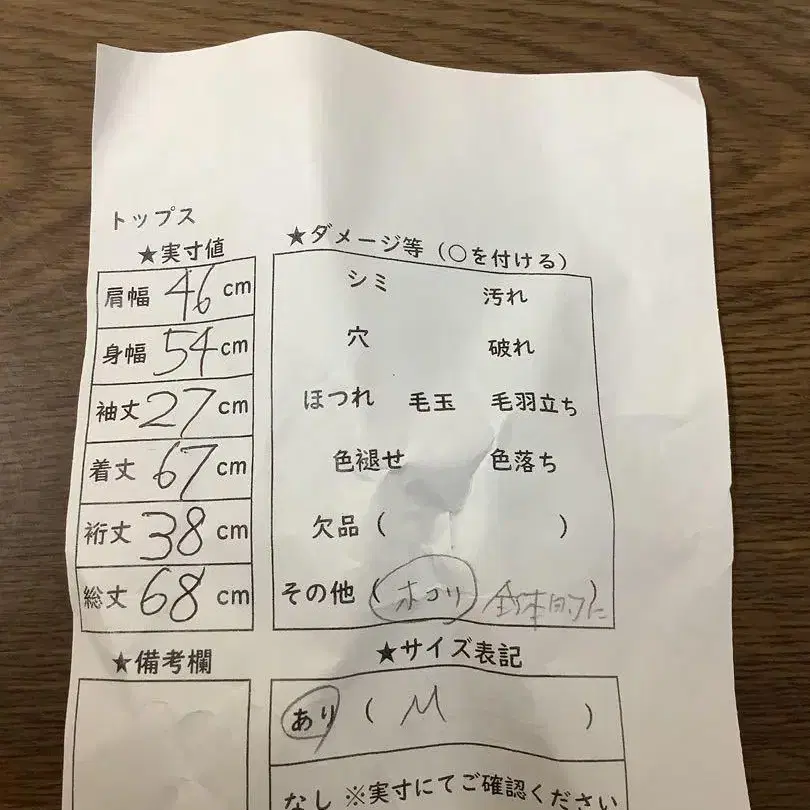 トップス
★実寸値
肩幅 46 cm
身幅 54 cm
袖丈 27 cm
着丈 67 cm
裄丈 38 cm
総丈 68 cm
★備考欄
★ダメージ等（○を付ける）
シミ 汚れ
穴 破れ
ほつれ 毛玉 毛羽立ち
色褪せ 色落ち
欠品（ ）
その他（ホコリ 全体的に）
★サイズ表記
あり（ M ）
なし ※実寸にてご確認ください